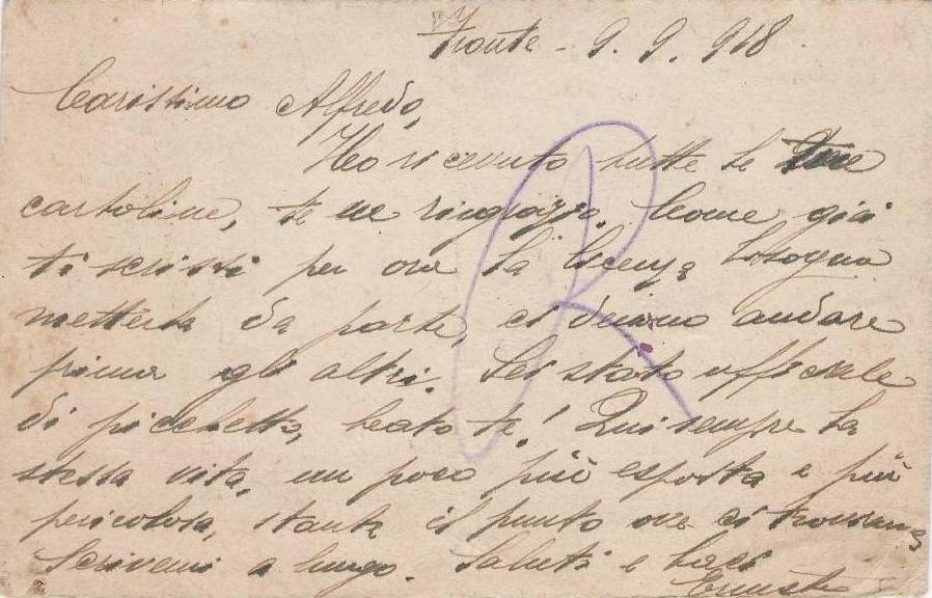 Fronte - 9. 9. 918.
Carissimo Alfredo,
Ho ricevuto tutte le tue
cartoline, te ne ringrazio. Come già
ti scrissi per ora la licenza bisogna
metterla da parte, ci devono andare
prima gli altri. Sei stato ufficiale
di picchetto, beato te! Qui sempre la
stessa vita, un poco più esposta e più
pericolosa, stante il punto ove ci troviamo
Scrivemi a lungo. Saluti e baci
Ernesto
R